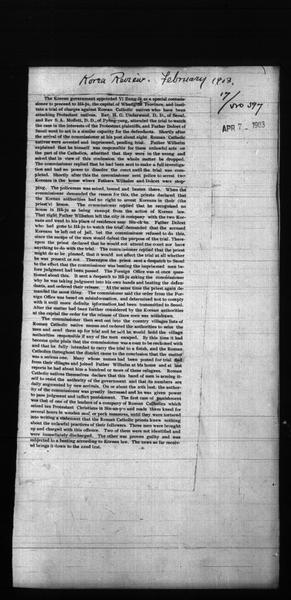 Korea Review. February 1903.
17/
APR 7 - 1903
The Korean government appointed Yi Eung-ik as a special commis-
sioner to proceed to Hă-ju, the capital of Whang-hă Province, and insti-
tute a trial of charges against Roman Catholic natives who have been
attacking Protestant natives. Rev. H. G. Underwood, D. D., of Seoul,
and Rev S. A. Moffett, D. D., of Pyeng-yang, attended the trial to watch
the case in the interests of the Protestant plaintiffs, and Father Wilhelm of
Seoul went to act in a similar capacity for the defendants. Shortly after
the arrival of the commissioner at his post about eight Roman Catholic
natives were arrested and imprisoned, pending trial. Father Wilhelm
explained that he himself was responsible for these unlawful acts on
the part of the Catholics, admitted that they were in the wrong and
asked that in view of this confession the whole matter be dropped.
The commissioner replied that he had been sent to make a full investiga-
tion and had no power to dismiss the court until the trial was com-
pleted. Shortly after this the commissioner sent police to arrest two
Koreans in the house where Fathers Wilhelm and Dolcet were stop-
ping. The policemen was seized, bound and beaten there. When the
commissioner demanded the reason for this, the priests declared that
the Korean authorities had no right to arrest Koreans in their (the
priest's) house. The commissioner replied that he recognized no
house in Hă-ju as being exempt from the action of Korean law.
That night Father Wilhelm left the city in company with the two Kor-
eans and went to his place of residence near Sin-ch'ŭn. Father Dolcet
who had gone to Hă-ju to watch the trial demanded that the accused
Koreans be left out of jail, but the commissioner refused to do this,
since the escape of the men would defeat the purpose of the trial. There-
upon the priest declared that he would not attend the court nor have
anything to do with the trial. The commissioner replied that the priest
might do as he pleased, that it would not affect the trial at all whether
he was present or not. Thereupon the priest sent a despatch to Seoul
to the effect that the commissioner was beating the imprisoned men be-
fore judgment had been passed. The Foreign Office was at once ques-
tioned about this. It sent a despatch to Hă-ju asking the commissioner
why he was taking judgment into his own hands and beating the defen-
dants, and ordered their release. At the same time the priest again de-
manded the same thing. The commissioner said the order from the For-
eign Office was based on misinformation, and determined not to comply
with it until more definite information had been transmitted to Seoul.
After the matter had been further considered by the Korean authorities
at the capital the order for the release of these men was withdrawn.
The commissioner then sent out into the country villages lists of
Roman Catholic native names and ordered the authorities to seize the
men and send them up for trial and he said he would hold the village
authorities responsible if any of the men escaped. By this time it had
become quite plain that the commissioner was a man to be reckoned with
and that he fully intended to carry the trial to a finish, and the Roman
Catholics throughout the district came to the conclusion that the matter
was a serious one. Many whose names had been posted for trial fled
from their villages and joined Father Wilhelm at his house and at last
reports he had about him a hundred or more of these refugees. Roman
Catholic natives themselves declare that this band of men is arming it-
self to resist the authority of the government and that its numbers are
daily augmented by new arrivals. On or about the 20th inst. the author-
ity of the commissioner was greatly increased and he was given power
to pass judgment and inflict punishment. The first case of punishment
was that of one of the leaders of a company of Roman Catholics which
seized ten Protestant Christians in Sin-an-p'o and made them kneel for
several hours in wooden and or pork manures, until they were tortured
into writing a statement that the Roman Catholic priests knew nothing
about the unlawful practices of their followers. Three men were brought
up and charged with this offence. Two of them were not identified and
were immediately discharged. The other was proven guilty and was
subjected to a beating according to Korean law. The news so far receiv-
ed brings it down to the 22nd inst.